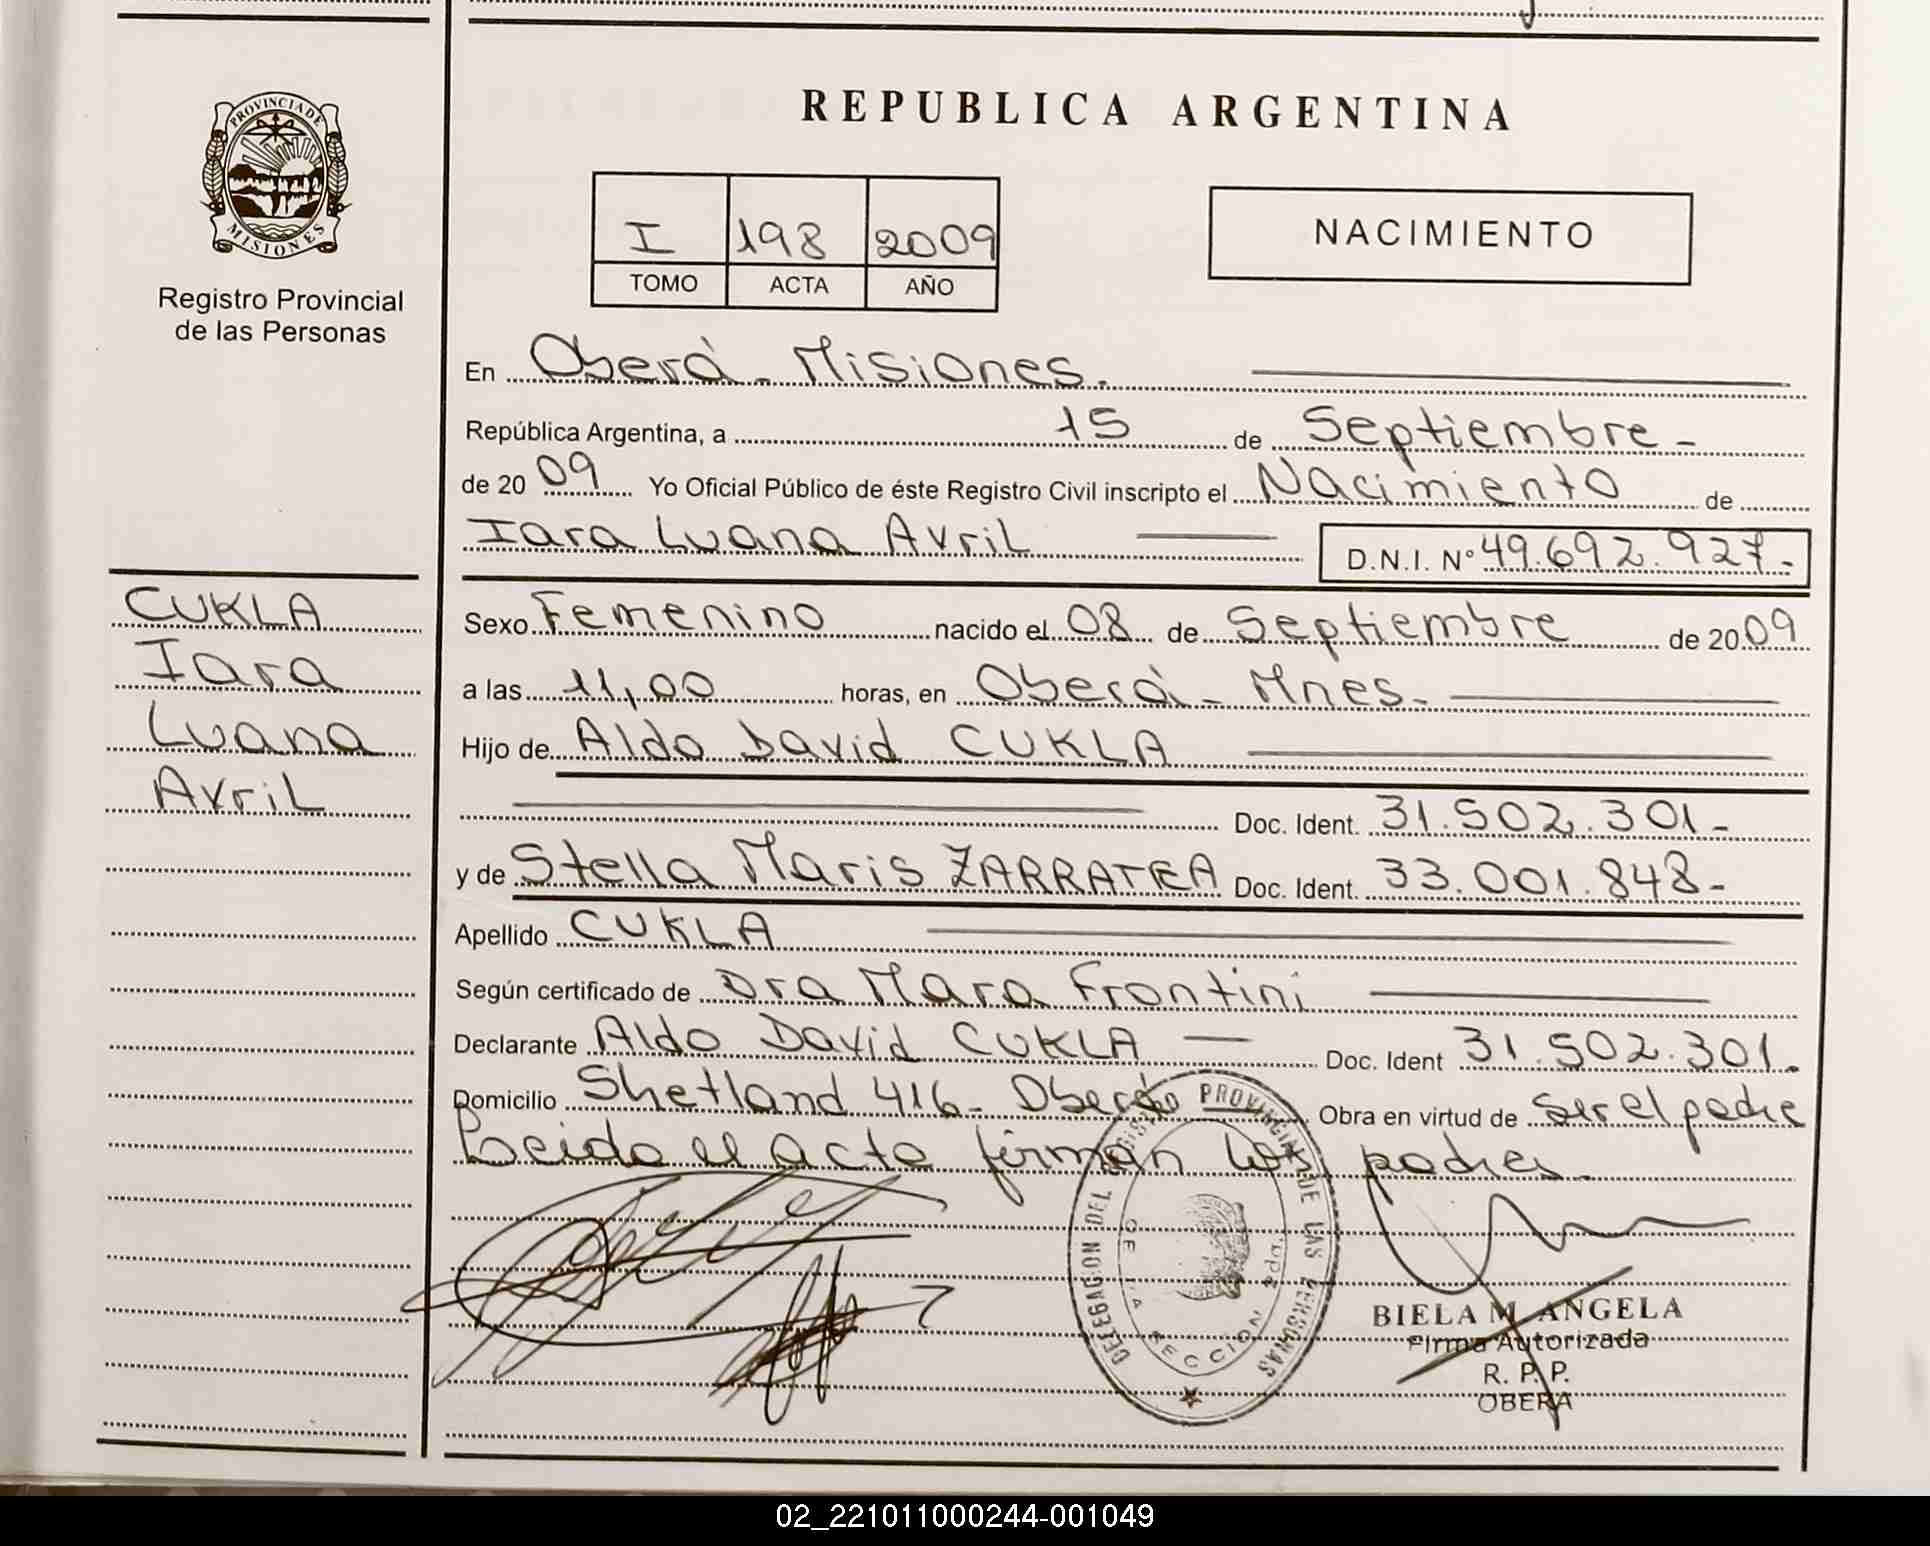 REPUBLICA ARGENTINA
PROVINCIA DE
MISIONES
Registro Provincial
de las Personas
I 198 2009
TOMO ACTA AÑO
NACIMIENTO
En Oberá - Misiones.
República Argentina, a 15 de Septiembre -
de 2009 Yo Oficial Público de éste Registro Civil inscripto el Nacimiento de
Iara Luana Avril D.N.I. Nº 49.692.927.-
CUKLA
Iara
Luana
Avril
Sexo Femenino nacido el 08 de Septiembre de 2009
a las 11,00 horas, en Oberá - Mnes.
Hijo de Aldo David CUKLA
Doc. Ident. 31.502.301-
y de Stella Maris ZARRATEA Doc. Ident. 33.001.848-
Apellido CUKLA
Según certificado de Dra Mara Frontini
Declarante Aldo David CUKLA Doc. Ident 31.502.301.
Domicilio Shetland 416- Oberá Obra en virtud de ser el padre
Leida el acta firman los padres.
DELEGACION DEL REGISTRO PROVINCIAL DE LAS PERSONAS
DE LA SECCION
BIELA M. ANGELA
Firma Autorizada
R. P. P.
OBERA
02_221011000244-001049